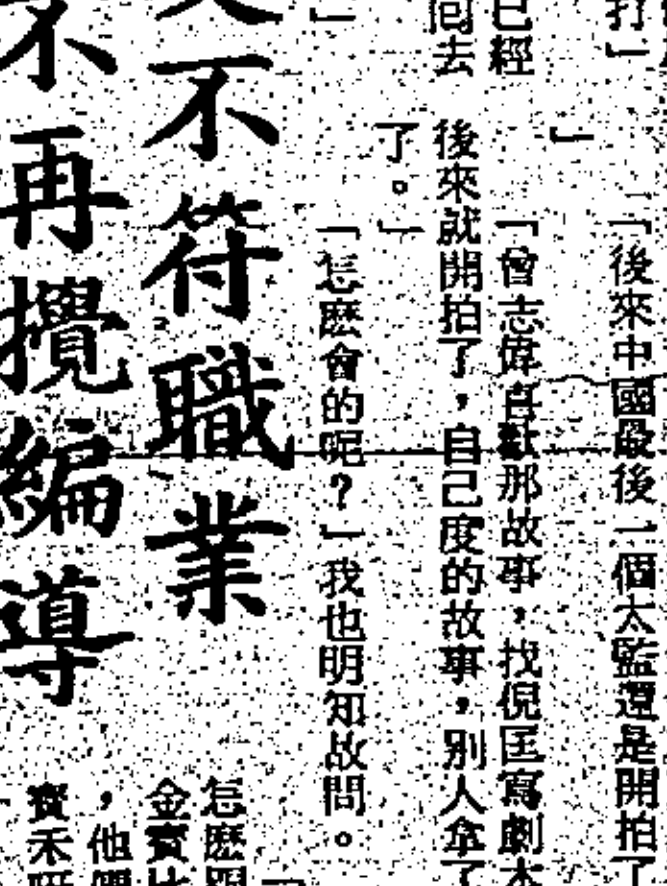 打」
「後來中國最後一個太監還是開拍了
」
已經
「曾志偉喜歡那故事，找倪匡寫劇本
回去
後來就開拍了，自己度的故事，別人拿了
了。」
「怎麽會的呢？」我也明知故問。
」
不符職業
不再攪編導
怎麽
金寶比
，他
寶禾